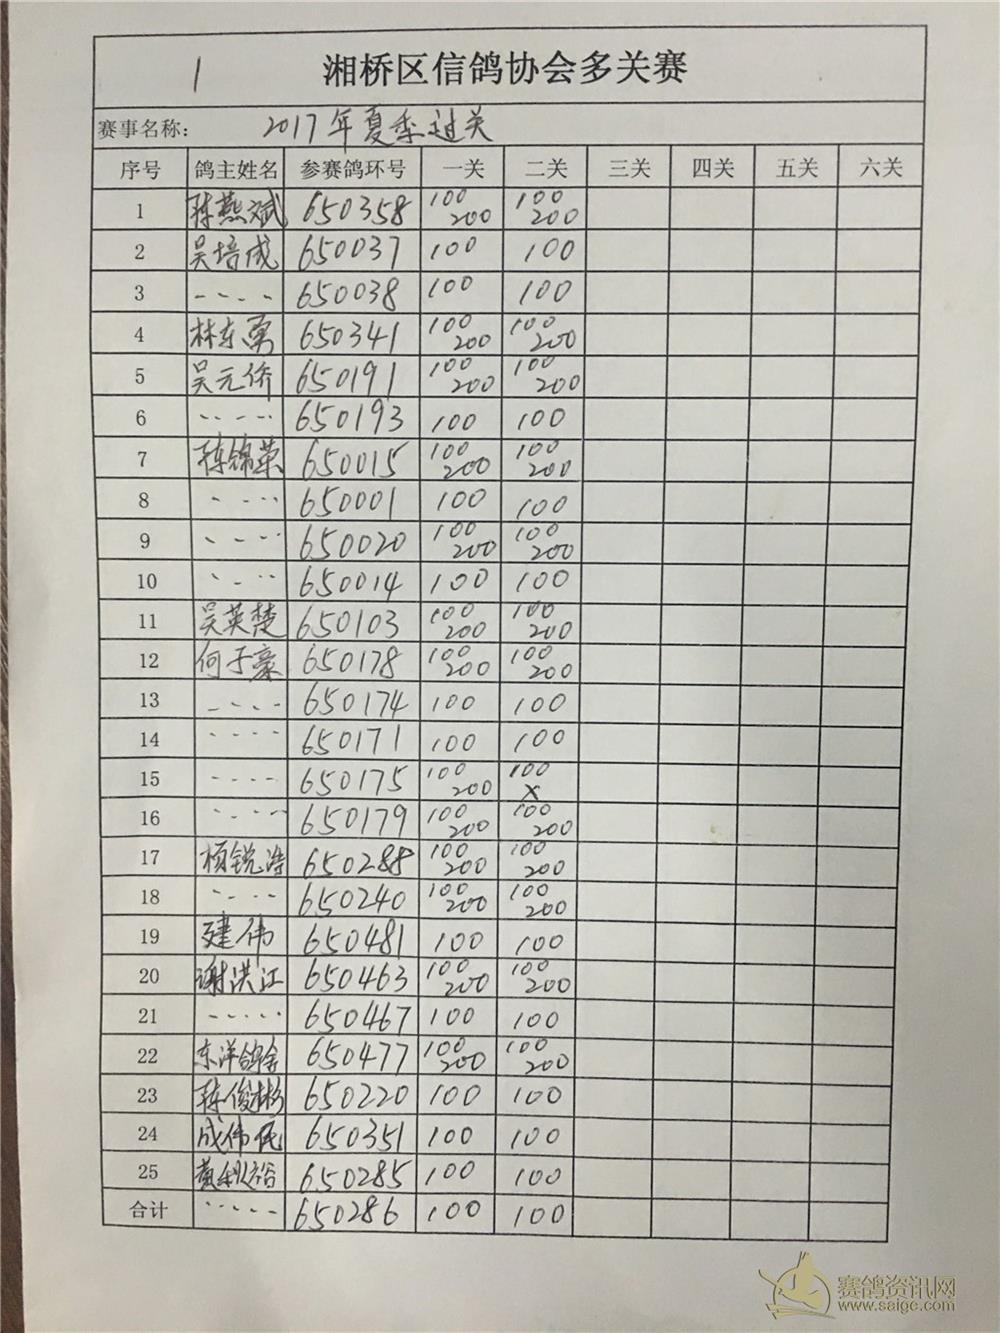 1
湘桥区信鸽协会多关赛
赛事名称： 2017年夏季过关
序号 鸽主姓名 参赛鸽环号 一关 二关 三关 四关 五关 六关
1 陈燕斌 650358 100 200 100 200
2 吴培成 650037 100 100
3 ---- 650038 100 100
4 林东勇 650341 100 200 100 200
5 吴元侨 650191 100 200 100 200
6 ---- 650193 100 100
7 陈锦荣 650015 100 200 100 200
8 ---- 650001 100 100
9 ---- 650020 100 200 100 200
10 ---- 650014 100 100
11 吴英楚 650103 100 200 100 200
12 何于豪 650178 100 200 100 200
13 ---- 650174 100 100
14 ---- 650171 100 100
15 ---- 650175 100 200 100 X
16 ---- 650179 100 200 100 200
17 杨锐涛 650288 100 200 100 200
18 ---- 650240 100 200 100 200
19 建伟 650481 100 100
20 谢洪江 650463 100 200 100 200
21 ----- 650467 100 100
22 东洋鸽舍 650477 100 200 100 200
23 陈俊彬 650220 100 100
24 成伟民 650351 100 100
25 650285 100 100
合计 ----- 650286 100 100
赛鸽资讯网
www.saige.com